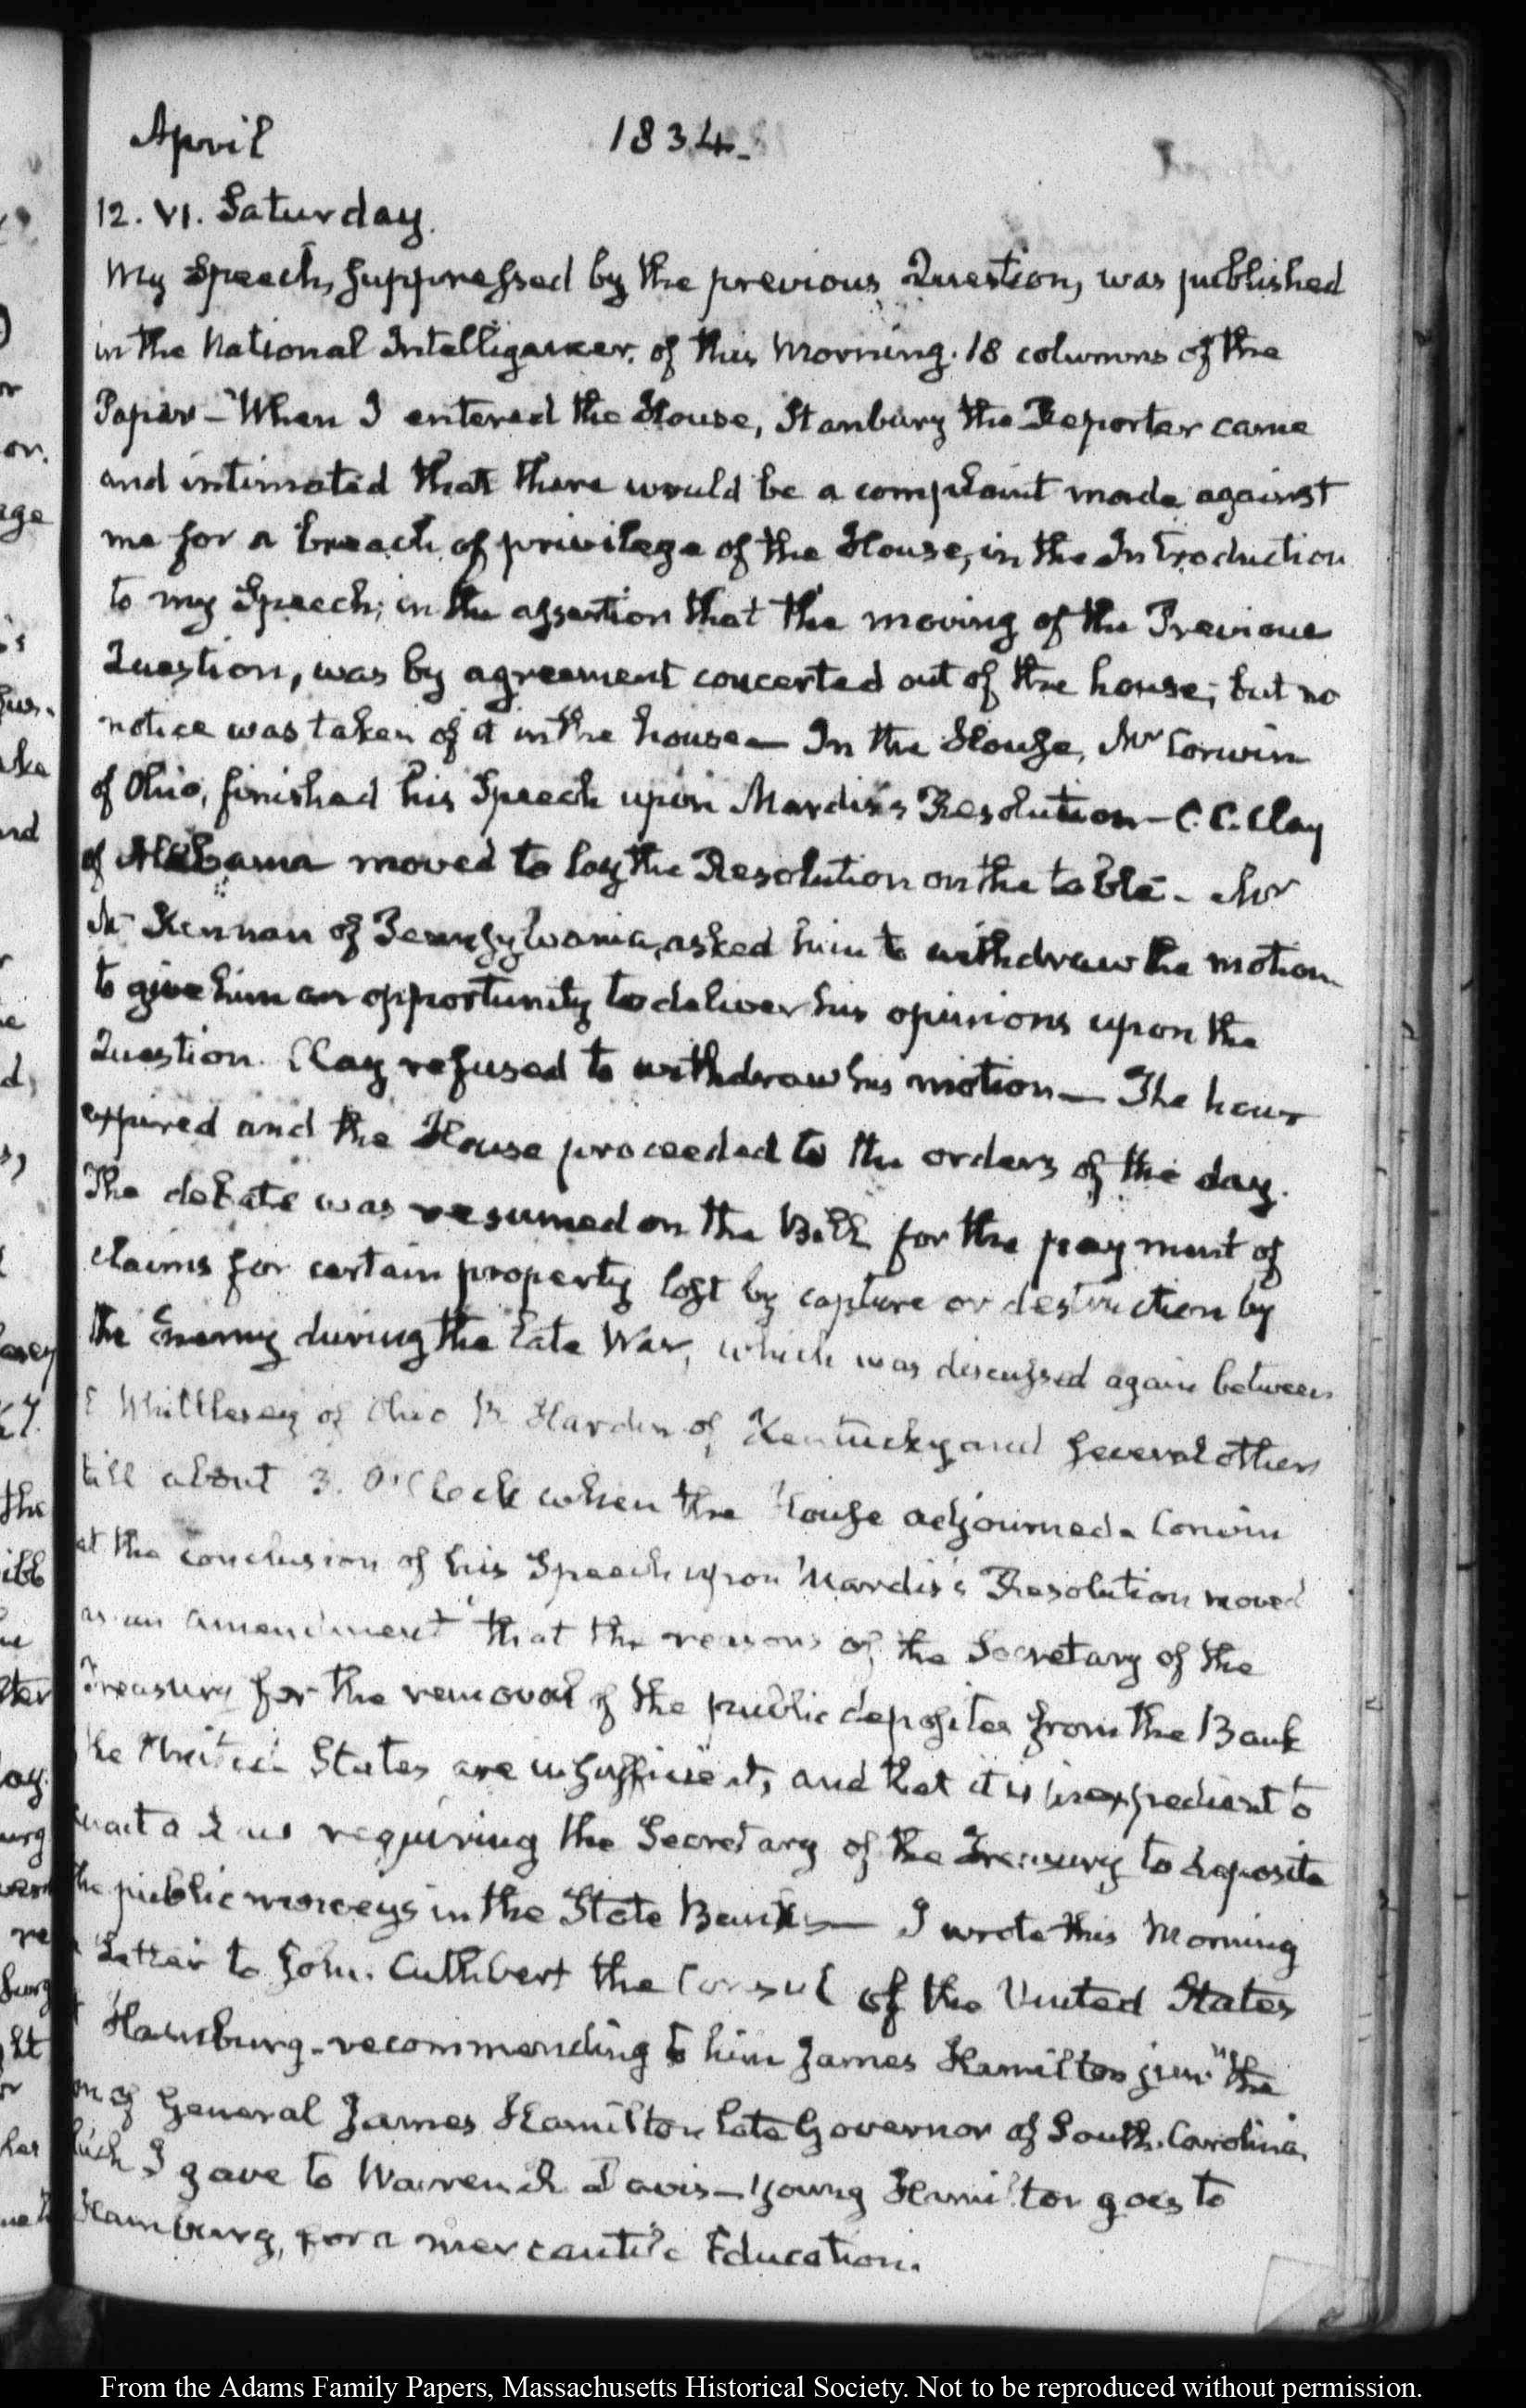 April 1834.
12. VI. Saturday.
My Speech, suppressed by the previous Question, was published
in the National Intelligencer, of this Morning. 18 columns of the
Paper — When I entered the House, Stanbury the Reporter came
and intimated that there would be a complaint made against
me for a breach of privilege of the House, in the Introduction
to my Speech; in the assertion that the moving of the Previous
Question, was by agreement concerted out of the house; but no
notice was taken of it in the house — In the House, Mr Corwin
of Ohio, finished his Speech upon Mardis's Resolution — C. C. Clay
of Alabama moved to lay the Resolution on the table — Mr
Mc Kennan of Pennsylvania, asked him to withdraw the motion
to give him an opportunity to deliver his opinions upon the
Question. Clay refused to withdraw his motion — The hour
expired and the House proceeded to the orders of the day.
The debate was resumed on the Bill for the payment of
claims for certain property lost by capture or destruction by
the Enemy during the late War, which was discussed again between
E Whittlesey of Ohio R. Hardin of Kentucky and several others
till about 3. O'Clock when the House adjourned. Corwin
at the conclusion of his Speech upon Mardis's Resolution moved
as an amendment that the reasons of the Secretary of the
Treasury for the removal of the public deposites from the Bank
the United States are insufficient, and that it is inexpedient to
enact a Law requiring the Secretary of the Treasury to deposite
the public moneys in the State Banks — I wrote this Morning
a Letter to John Cuthbert the Consul of the United States
at Hamburg — recommending to him James Hamilton junr. the
son of General James Hamilton late Governor of South-Carolina,
which I gave to Warren R Davis — Young Hamilton goes to
Hamburg, for a mercantile Education.
From the Adams Family Papers, Massachusetts Historical Society. Not to be reproduced without permission.